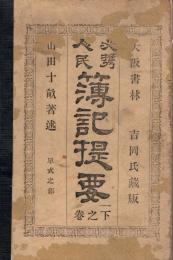 大阪書林 吉岡氏藏版
人民必携
簿記提要
下之卷
山田十畝著述
單式之部